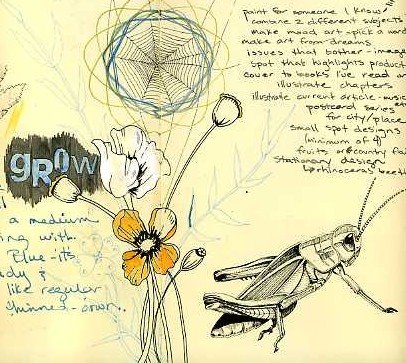 paint for someone I know
combine 2 different subjects
make mood art - pick a word
make art from dreams
issues that bother - image
spot that highlights product
cover to books I've read or
illustrate chapters
illustrate current article - music
postcard series
for city/place
small spot designs
(minimum of 4)
fruits or country fair
stationary design
rhinoceras beetle
grow
a medium
ing with
Blue - its
ady &
like regular
thinned - down..